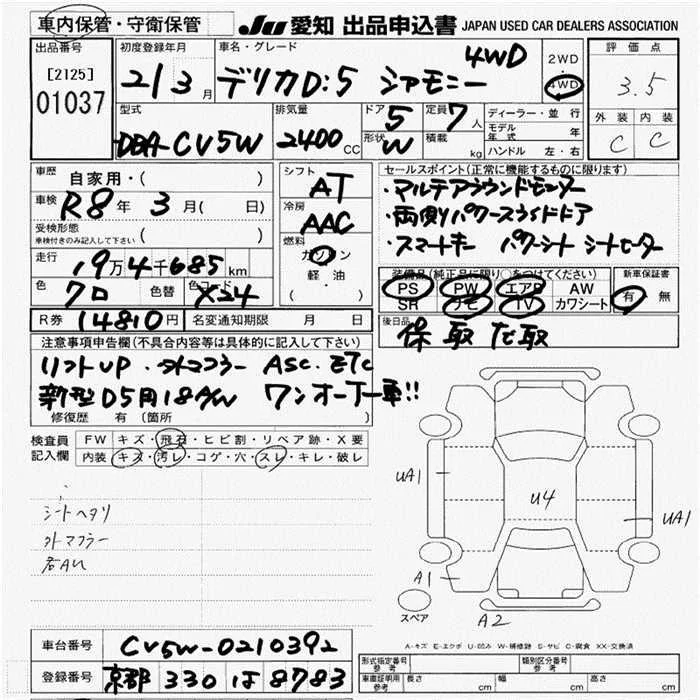 車内保管・守衛保管
JU 愛知 出品申込書 JAPAN USED CAR DEALERS ASSOCIATION
出品番号
[2125]
01037
初度登録年月
21 3 月
車名・グレード
デリカD:5 シャモニー 4WD
2WD
・
4WD
評価点
3.5
外装 内装
C C
型式
DBA-CV5W
排気量
2400 CC
ドア 5
形状 W
定員 7 人
積載 kg
ディーラー・並行
モデル年式 年
ハンドル 左・右
車歴
自家用・( )
車検
R8年 3月( 日)
受検形態
車検付きのみ記入して下さい ( )
走行
19万4千685km
色
クロ
色替
色コード
X24
シフト
AT
冷房
AAC
燃料
ガソリン
軽・油
( )
R券 14810円 名変通知期限 月 日
セールスポイント(正常に機能するものに限ります)
・マルチアラウンドモニター
・両側パワースライドドア
・スマートキー パワーシート シートヒーター
装備品(純正品に限り○をつけてください)
PS PW エアB AW
SR ナビ TV カワシート
新車保証書
有 無
後日品
保 取 ナビ取
注意事項申告欄(不具合内容等は具体的に記入して下さい)
リフトUP・外マフラー ASC・ETC
新型D5用18A/W ワンオーナー車!!
修復歴 有(箇所 )
検査員記入欄
FW キズ・飛石・ヒビ割・リペア跡・X要
内装 キズ・汚レ・コゲ・穴・スレ・キレ・破レ
シートヘタリ
外マフラー
社AW
UA1
U4
UA1
A1
A2
スペア
A-キズ E-エクボ U-凹み W-補修跡 S-サビ C-腐食 XX-交換済
車台番号 CV5W-0210392
登録番号 京都 330 は 8783
形式指定番号 参考
類別区分番号 参考
車庫証明用 参考 長さ cm 幅 cm 高さ cm